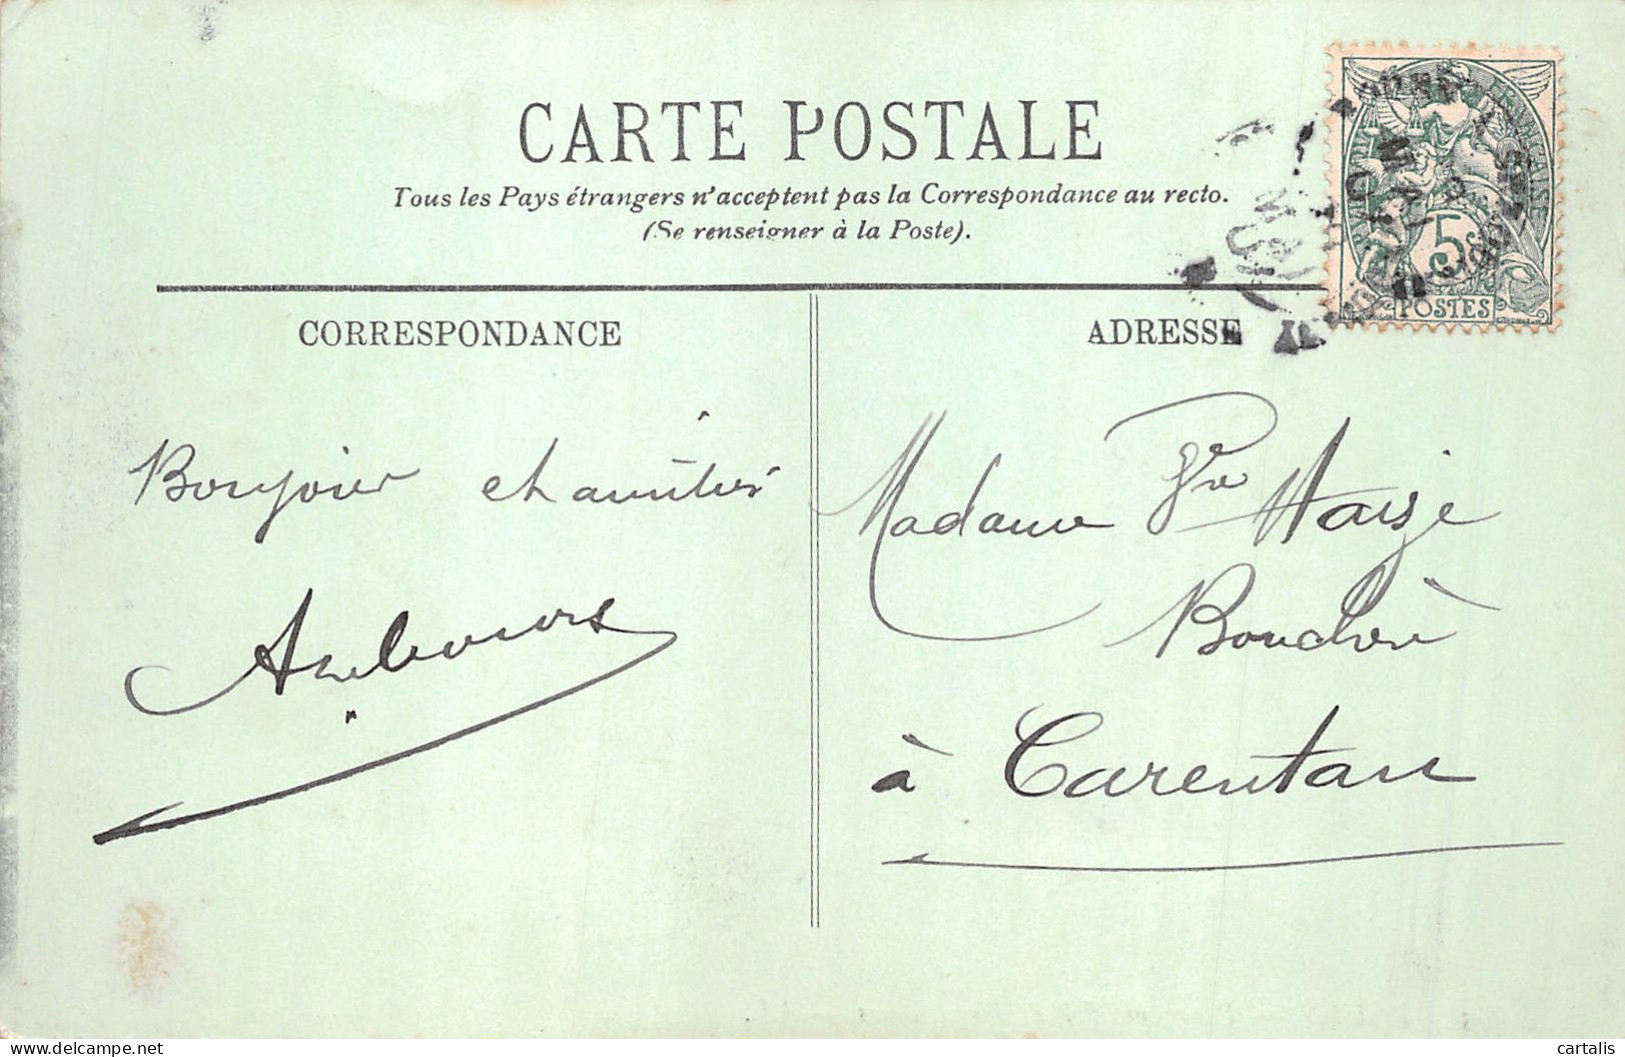 CARTE POSTALE
Tous les Pays étrangers n'acceptent pas la Correspondance au recto.
(Se renseigner à la Poste).
CORRESPONDANCE
ADRESSE
5
POSTES
MAI
Bonjour et amitiés
Madame
Bouchère
à Carentan
cartalis
delcampe.net